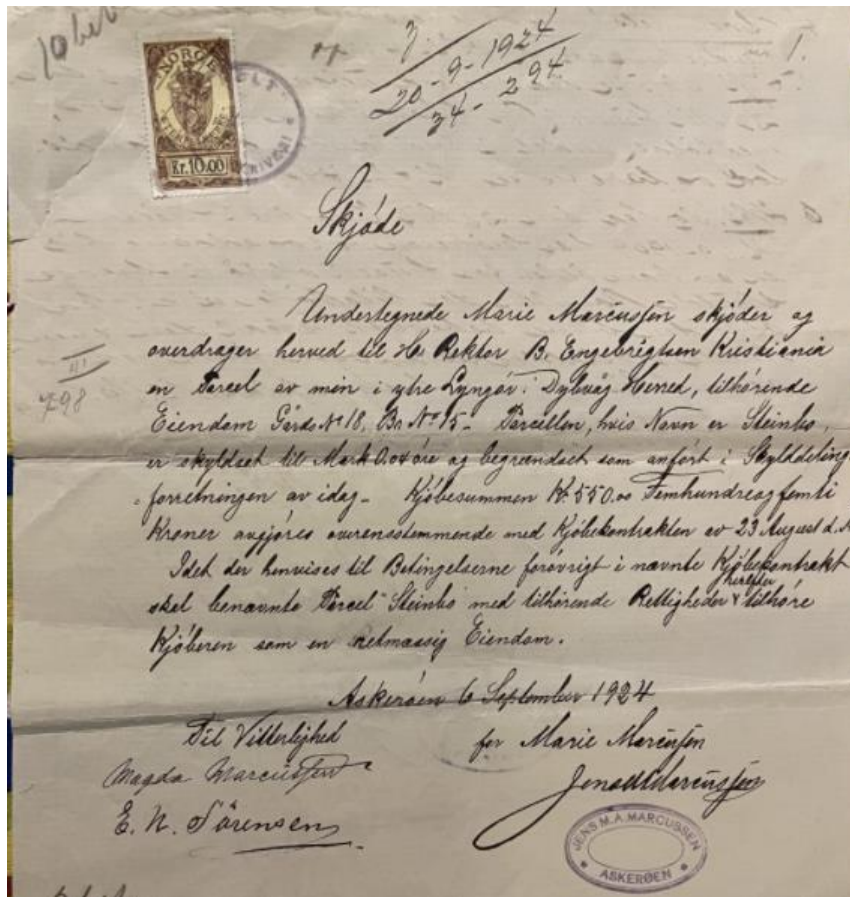 10
7.
1.
20-9-1924
34-294
NORGE
Kr.10.00
Skjøde
Undertegnede Marie Marcussen skjøder og
overdrager herved til Hr Rektor B. Engebrigtsen Kristiania
en Parcel av min i ytre Lyngør i Dybvåg Herred, tilhørende
Eiendom Gårds No 18, Br No 15 - Parcellen, hvis Navn er Steinbo,
er skyldsat til Mark 0.04 øre og begrændset som anført i Skylddeling
forretningen av idag - Kjøbesummen Kr. 550.00 Femhundreogfemti
Kroner avgjøres overensstemmende med Kjøbekontrakten av 23 August d. A
Idet der henvises til Betingelserne forøvrigt i nævnte Kjøbekontrakt
skal benævnte Parcel "Steinbo" med tilhørende Rettigheder herefter tilhøre
Kjøberen som en retmæssig Eiendom.
III
798
Askerøen 6 September 1924
Til Vitterlighed
for Marie Marcussen
Magda Marcussen
Jens M A Marcussen
E. N. Sørensen
JENS M.A. MARCUSSEN
ASKERØEN